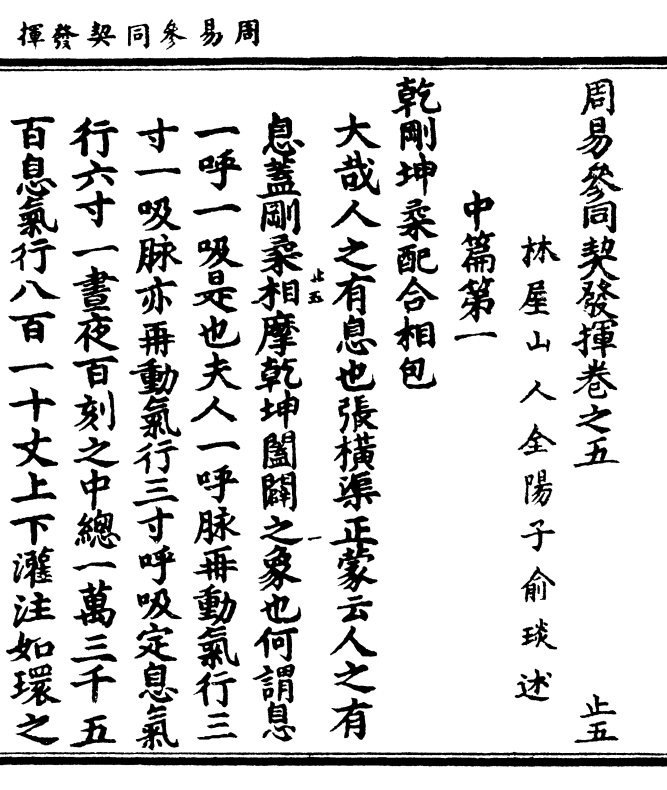 周易參同契發揮
周易參同契發揮卷之五
止五
林屋山人全陽子俞琰述
中篇第一
乾剛坤柔配合相包
大哉人之有息也張橫渠正蒙云人之有
止五 一
息蓋剛柔相摩乾坤闔闢之象也何謂息
一呼一吸是也夫人一呼脉再動氣行三
寸一吸脉亦再動氣行三寸呼吸定息氣
行六寸一晝夜百刻之中總一萬三千五
百息氣行八百一十丈上下灌注如環之